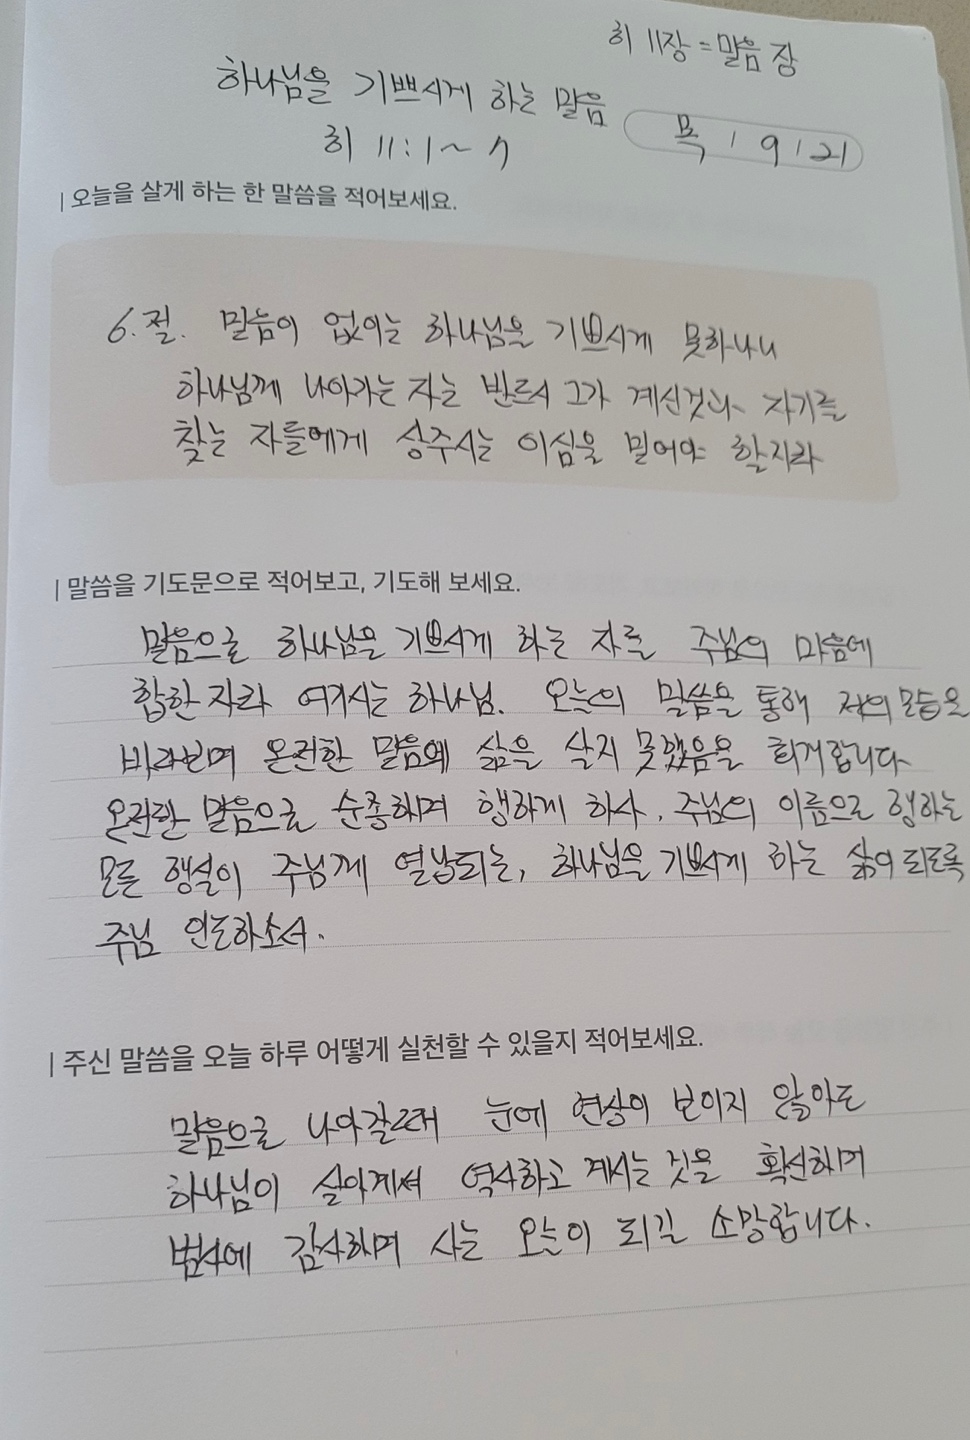 히 11장 = 믿음 장
하나님을 기쁘시게 하는 믿음
히 11:1~7
목 / 9 / 21
| 오늘을 살게 하는 한 말씀을 적어보세요.
6.절. 믿음이 없이는 하나님을 기쁘시게 못하나니
하나님께 나아가는 자는 반드시 그가 계신것과 자기를
찾는 자들에게 상주시는 이심을 믿어야 할지라
| 말씀을 기도문으로 적어보고, 기도해 보세요.
믿음으로 하나님을 기쁘시게 하는 자를 주님의 마음에
합한 자라 여기시는 하나님. 오늘의 말씀을 통해 저의 모습을
바라보며 온전한 믿음의 삶을 살지 못했음을 회개합니다
온전한 믿음으로 순종하며 행하게 하사, 주님의 이름으로 행하는
모든 행실이 주님께 열납되는, 하나님을 기쁘시게 하는 삶이 되도록
주님 인도하소서.
| 주신 말씀을 오늘 하루 어떻게 실천할 수 있을지 적어보세요.
믿음으로 나아갈때 눈에 현상이 보이지 않아도
하나님이 살아계셔 역사하고 계시는 것을 확신하며
범사에 감사하며 사는 오늘이 되길 소망합니다.